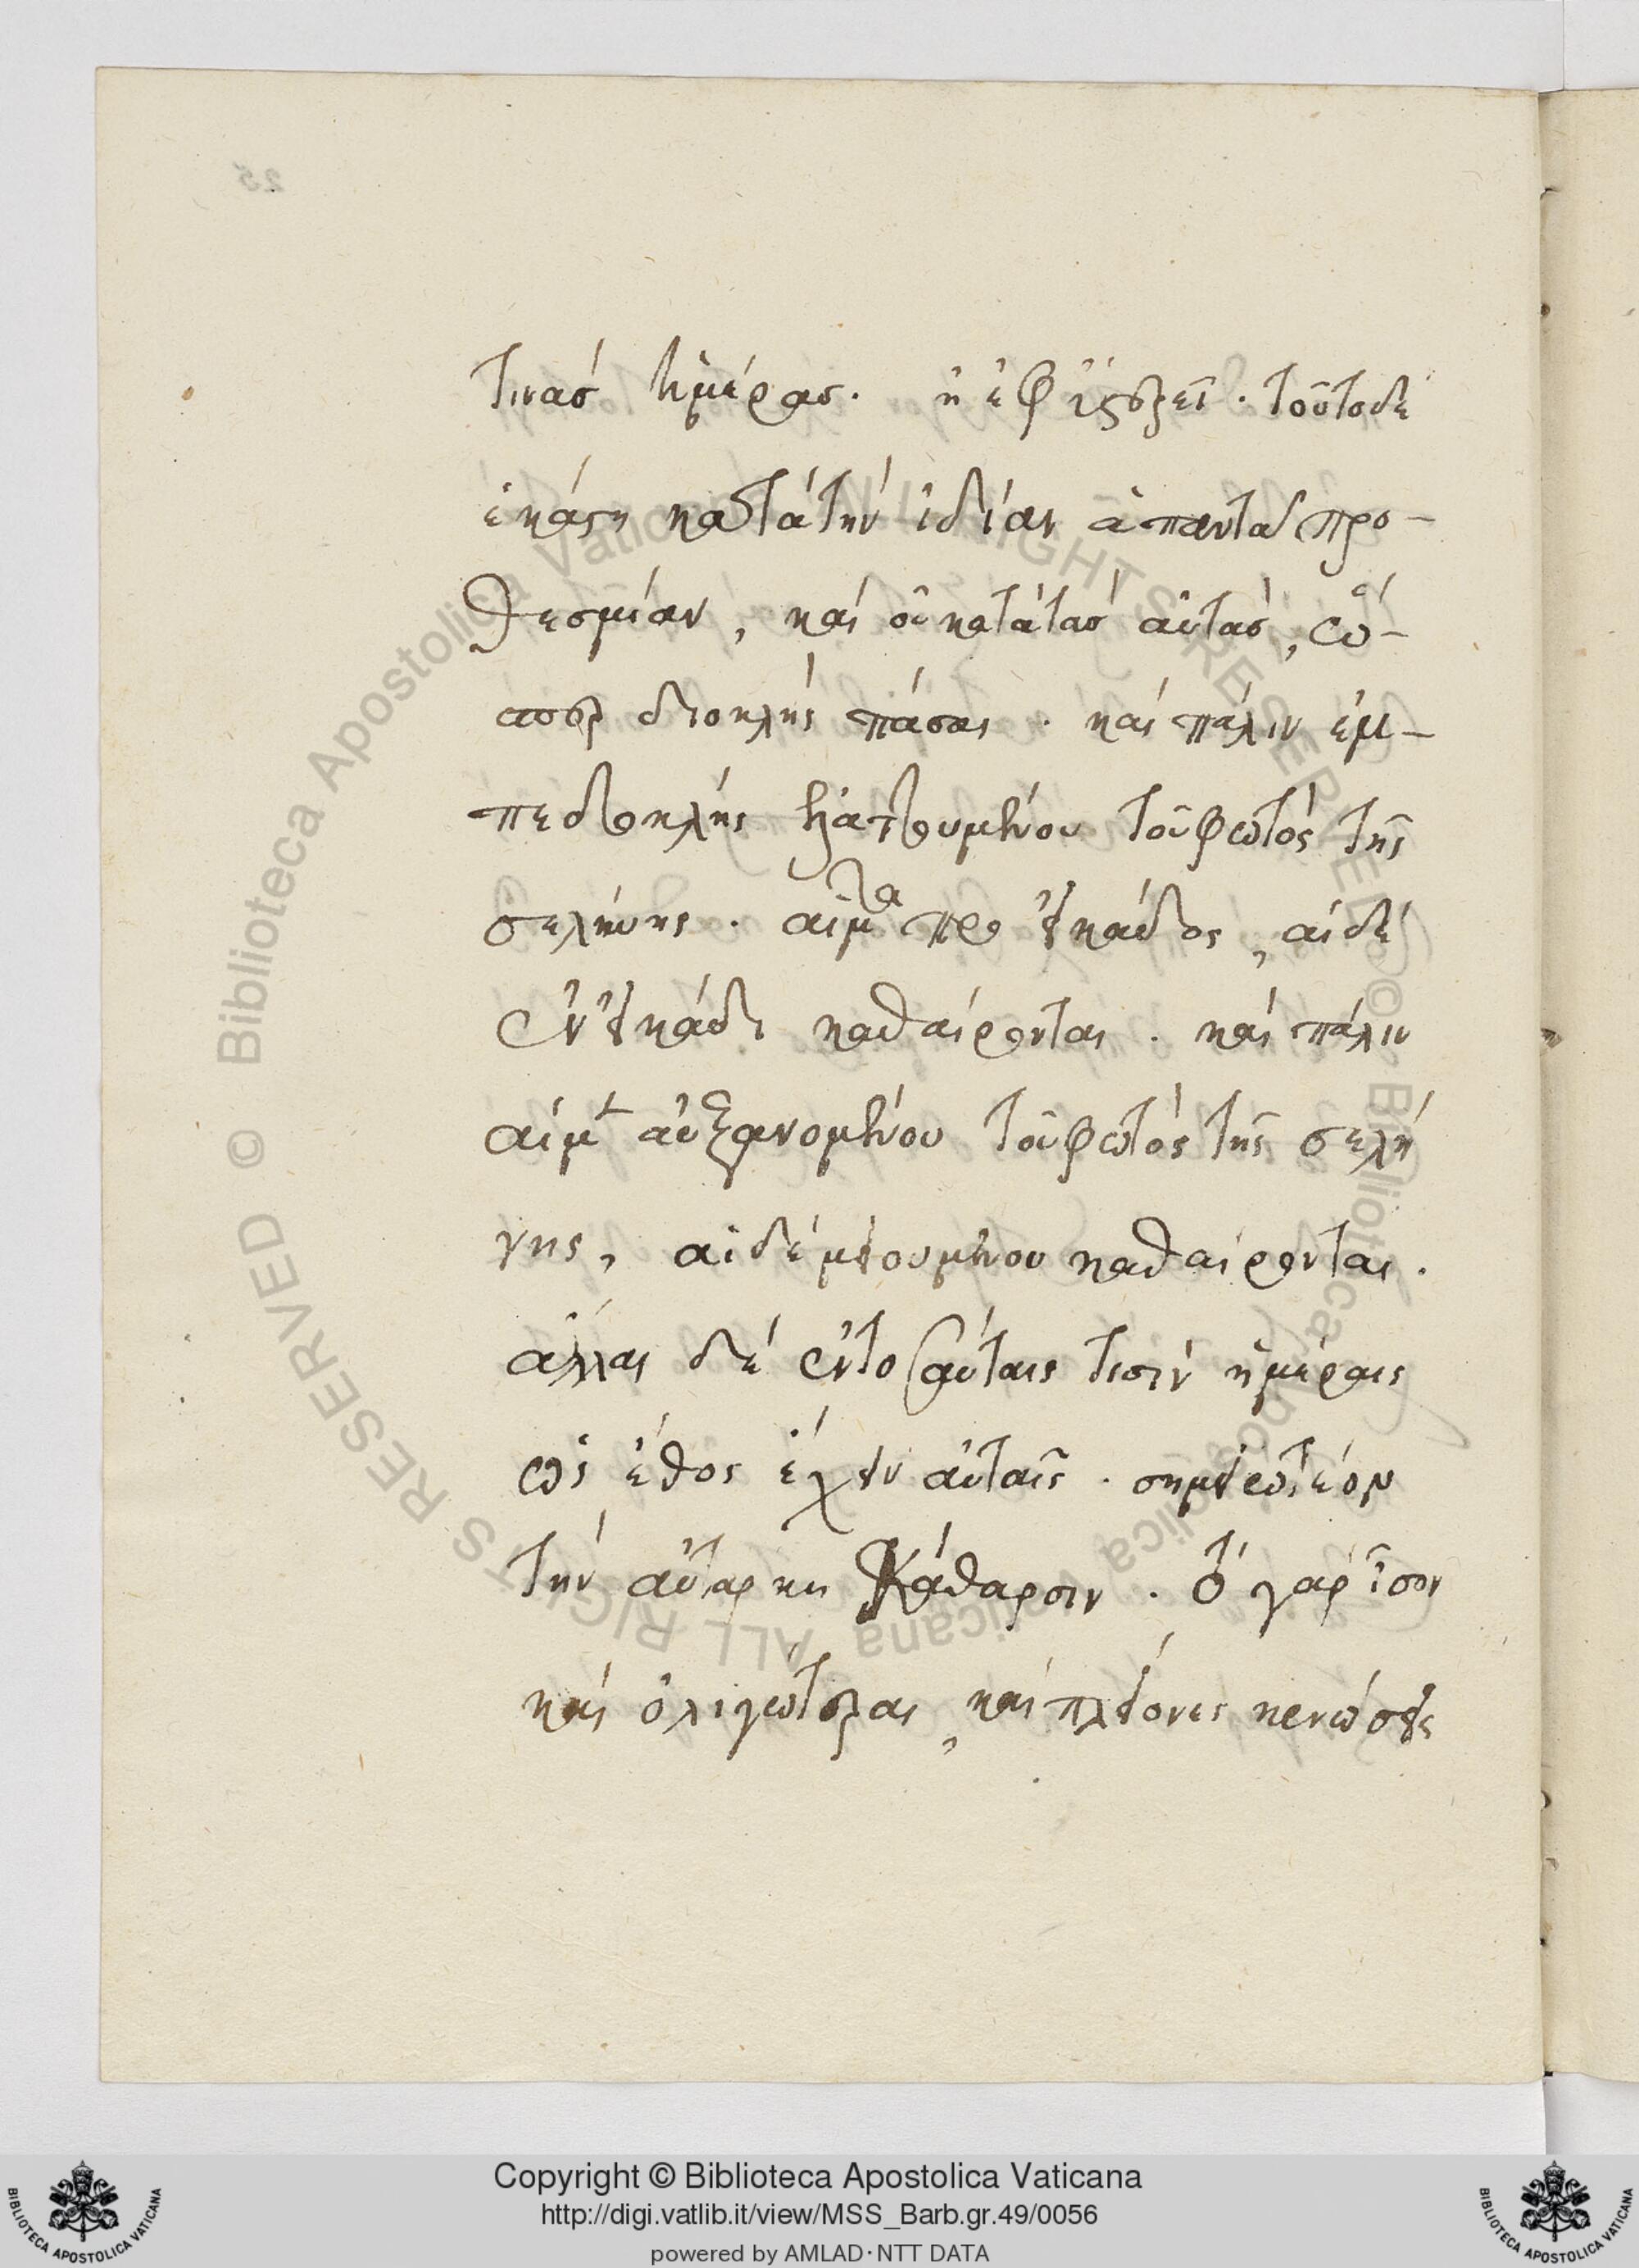 τινασ ἡμέρασ. ἢ ἐφ ὑστερεῖ. τοῦτο δὲ
ἑκάστη κατὰ τὴν ἰδίαν ἅπαντα προ-
θεσμίαν, καὶ οὐ κατὰ τὰσ αὐτὰσ, ὥσ-
περ διοκλῆς πάσαι. καὶ πάλιν ἐμ-
πεδοκλῆς ἐλαττουμένου τοῦ φωτὸς τῆς
σελήνης. αἱ μὲν πρὸ εἰκάδος, αἱ δὲ
ἐν εἰκάδι καθαίρονται. καὶ πάλιν
αἱ μὲν αὐξανομένου τοῦ φωτὸς τῆς σελή
νης, αἱ δὲ μειουμένου καθαίρονται.
ἄλλαι δὲ ἐν τοσαύταις τισὶν ἡμέραις
ὡς ἔθος ἔχειν αὐταῖς. σημειωτέον
τὴν αὐτάρκη κάθαρσιν. οὐ γὰρ ἴσον
καὶ ὀλιγώτεραι, καὶ πλείονες κενώσεις
25
Copyright © Biblioteca Apostolica Vaticana
http://digi.vatlib.it/view/MSS_Barb.gr.49/0056
powered by AMLAD·NTT DATA
BIBLIOTECA APOSTOLICA VATICANA
BIBLIOTECA APOSTOLICA VATICANA
© Biblioteca Apostolica Vaticana ALL RIGHTS RESERVED
© Biblioteca Apostolica Vaticana ALL RIGHTS RESERVED